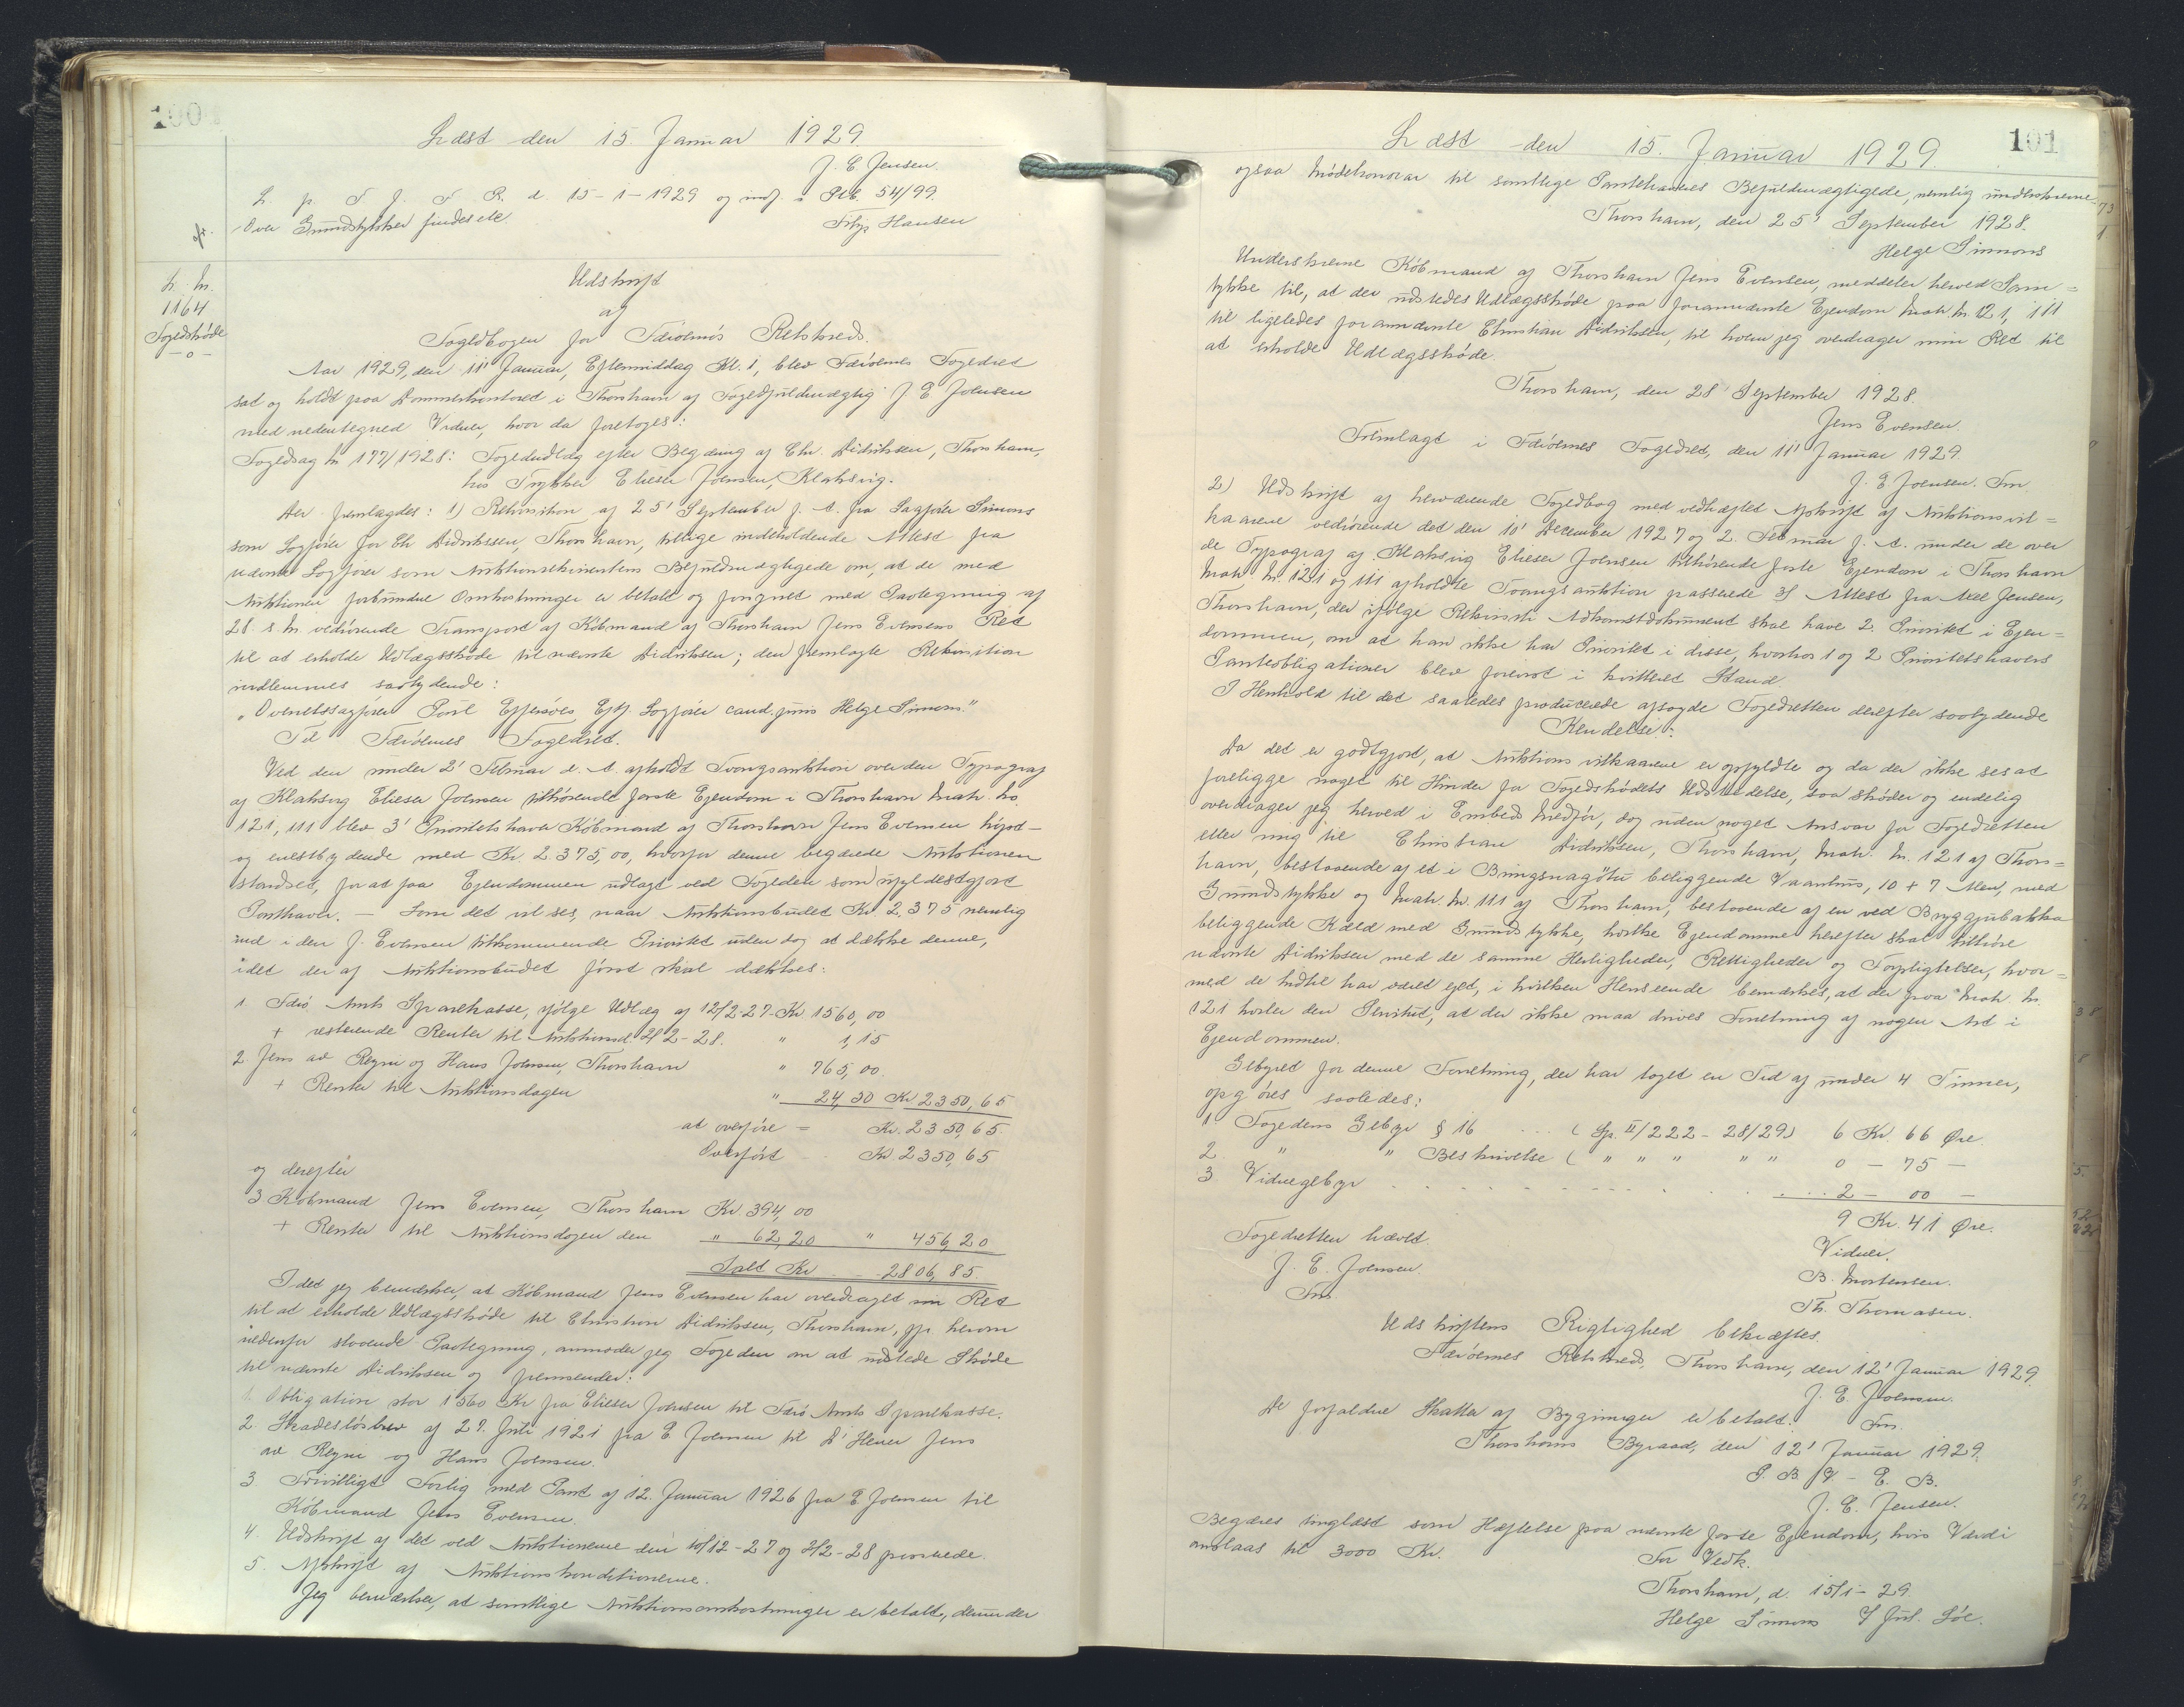 100
Læst den 15. Januar 1929.
J. E. Jensen.
L. p. T. f. F. R. d. 15-1-1929 og indf. i Pkb. 54/99.
Over Grundstykket findes etc.
Filip Hansen
L. Nr.
1164
Fogedskøde
-o-
Udskrift
af
Fogedbogen for Færøernes Retskreds.
Aar 1929, den 11' Januar, Eftermiddag Kl. 1, blev Færøernes Fogedret
sat og holdt paa Dommerkontoret i Thorshavn af Fogedfuldmægtig J. E. Joensen
med nedentegned Vidner, hvor da foretoges:
Fogedsag Nr 177/1928: Fogedudlæg efter Begæring af Chr. Didriksen, Thorshavn,
hos Trykker Elieser Joensen, Klaksvig.
Der fremlagdes: 1) Rekvisition af 25' September f. A. fra Sagfører Simons
som Sagfører for Chr Didriksen, Thorshavn, tillige indeholdende Attest fra
nævnte Sagfører som Auktionsrekvirentens Befuldmægtigede om, at de med
Auktionen forbundne Omkostninger er betalt og forsynet med Paategning af
28. s. M. vedrørende Transport af Købmand af Thorshavn Jens Evensens Ret
til at erholde Udlægsskøde til nævnte Didriksen; den fremlagte Rekvisition
indlemmes saalydende:
"Overretssagfører Poul Effersøes Eftf. Sagfører cand. juris Helge Simons."
Til Færøernes Fogedret.
Ved den under 2' Februar d. A. afholdt Tvangsauktion over den Typograf
af Klaksvig Elieser Joensen tilhørende faste Ejendom i Thorshavn Matr. No
121, 111 blev 3' Prioritetshaver Købmand af Thorshavn Jens Evensen højst-
og enestbydende med Kr. 2375,00, hvorfor denne begærede Auktionen
standset, for at faa Ejendommen udlagt ved Fogeden som ufyldestgjort
Panthaver. - Som det vil ses, naar Auktionsbudet Kr. 2.375 nemlig
ind i den J. Evensen tilkommende Prioritet uden dog at dække denne,
idet der af Auktionsbudet først skal dækkes:
1. Færø Amts Sparekasse, ifølge Udlæg af 12/2-27- Kr. 1560,00
+ resterende Renter til Auktionsd. 2/2-28. " 1,15
2. Jens av Reyni og Hans Joensen, Thorshavn " 765,00.
+ Renter til Auktionsdagen " 24,50 Kr 2350,65
at overføre = Kr. 2350,65.
Overført Kr. 2350,65
og derefter
3 Købmand Jens Evensen, Thorshavn Kr. 394,00
+ Renter til Auktionsdagen den " 62,20 " 456,20
Ialt Kr - 2806,85.
Idet jeg bemærker, at Købmand Jens Evensen har overdraget sin Ret
til at erholde Udlægsskøde til Christian Didriksen, Thorshavn, jfr. herom
nedenfor staaende Paategning, anmoder jeg Fogeden om at udstede Skøde
til nævnte Didriksen og fremsender:
1. Obligation stor 1560 Kr fra Elieser Joensen til Færø Amts Sparekasse.
2. Skadesløsbrev af 27. Juli 1921 fra E. Joensen til D' Herrer Jens
av Reyni og Hans Joensen.
3 Frivilligt Forlig med Pant af 12. Januar 1926 fra E Joensen til
Købmand Jens Evensen.
4. Udskrift af det ved Auktionerne den 10/12-27 og 2/2-28 passerede.
5. Afskrift af Auktionskonditionerne.
Jeg bemærker, at samtlige Auktionsomkostninger er betalt, derunder
Læst den 15. Januar 1929.
101
ogsaa Mødehonorar til samtlige Panthavernes Befuldmægtigede, nemlig undertegnede
Thorshavn, den 25' September 1928.
Helge Simons
Underskrevne Købmand af Thorshavn Jens Evensen, meddeler herved Sam=
tykke til, at der udstedes Udlægsskøde paa forannævnte Ejendom Matr. Nr. 121, 111
til ligeledes forannævnte Christian Didriksen, til hvem jeg overdrager min Ret til
at erholde Udlægsskøde.
Thorshavn, den 28' September 1928.
Jens Evensen.
Fremlagt i Færøernes Fogedret, den 11' Januar 1929.
J. E. Joensen. Fm.
2) Udskrift af herværende Fogedbog med vedhæftet Afskrift af Auktionsvil=
kaarene vedrørende det den 10' December 1927 og 2. Februar f. A. under de over
de Typograf af Klaksvig Elieser Joensen tilhørende faste Ejendom i Thorshavn
Matr. Nr. 121 og 111 afholdte Tvangsauktion passerede 3) Attest fra Axel Jensen,
Thorshavn, der ifølge Rekvisiti Adkomstdokument skal have 2. Prioritet i Ejen=
dommen, om at han ikke har Prioritet i disse, hvorhos 1 og 2 Prioritetshavers
Panteobligationer blev forevist i kvitteret Stand
I Henhold til det saaledes producerede afsagde Fogedretten derefter saalydende
Kendelse:
Da det er godtgjort, at Auktionsvilkaarene er opfyldte og da der ikke ses at
foreligge noget til Hinder for Fogedskødets Udstedelse, saa skøder og endelig
overdrager jeg herved i Embeds Medfør, dog uden noget Ansvar for Fogedretten
eller mig til Christian Didriksen, Thorshavn, Matr. Nr. 121 af Thors=
havn, bestaaende af et i Bringsnagøtu beliggende Vaanhus, 10 + 7 Alen, med
Grundstykke og Matr. Nr. 111 af Thorshavn, bestaaende af en ved Bryggjubakka
beliggende Kæld med Grundstykke, hvilke Ejendomme herefter skal tilhøre
nævnte Didriksen med de samme Herligheder, Rettigheder og Forpligtelser, hvor=
med de hidtil har været ejet, i hvilken Henseende bemærkes, at der paa Matr. Nr.
121 hviler den Servitut, at der ikke maa drives Forretning af nogen Art i
Ejendommen.
Gebyret for denne Forretning, der har taget en Tid af under 4 Timer,
opgøres saaledes:
1. Fogedens Gebyr § 16 . . . ( Sp. II/222-28/29) 6 Kr. 66 Øre.
2. " " Beskrivelse ( " " " " " 0 - 75 -
3 Vidnegebyr . . . . . . . . 2 - 00 -
9 Kr. 41 Øre.
Fogedretten hævet.
J. E. Joensen.
Fm.
Vidner.
B. Mortensen.
Th. Thomasen.
Udskriftens Rigtighed bekræftes.
Færøernes Retskreds, Thorshavn, den 12' Januar 1929.
J. E. Joensen.
Fm.
De forfaldne Skatter af Bygninger er betalt.
Thorshavns Byraad, den 12' Januar 1929.
P. B. V - E. B.
J. E. Jensen.
Begæres tinglæst som Hæftelse paa nævnte faste Ejendom, hvis Værdi
anslaas til 3000 Kr.
For Vedk.
Thorshavn, d. 15/1-29
Helge Simons